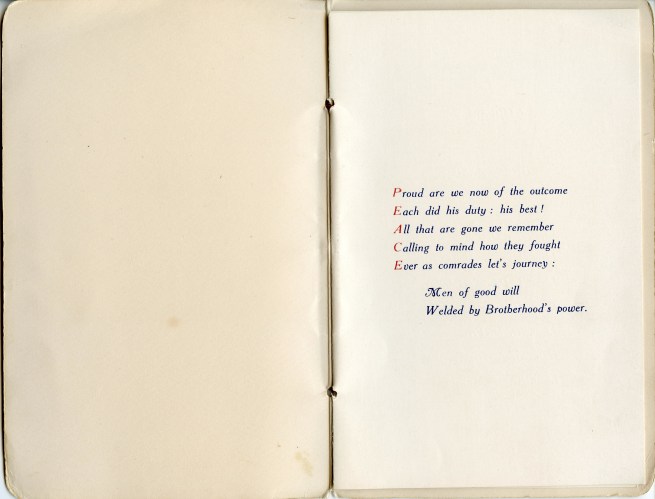 Proud are we now of the outcome
Each did his duty : his best !
All that are gone we remember
Calling to mind how they fought
Ever as comrades let's journey :
Men of good will
Welded by Brotherhood's power.